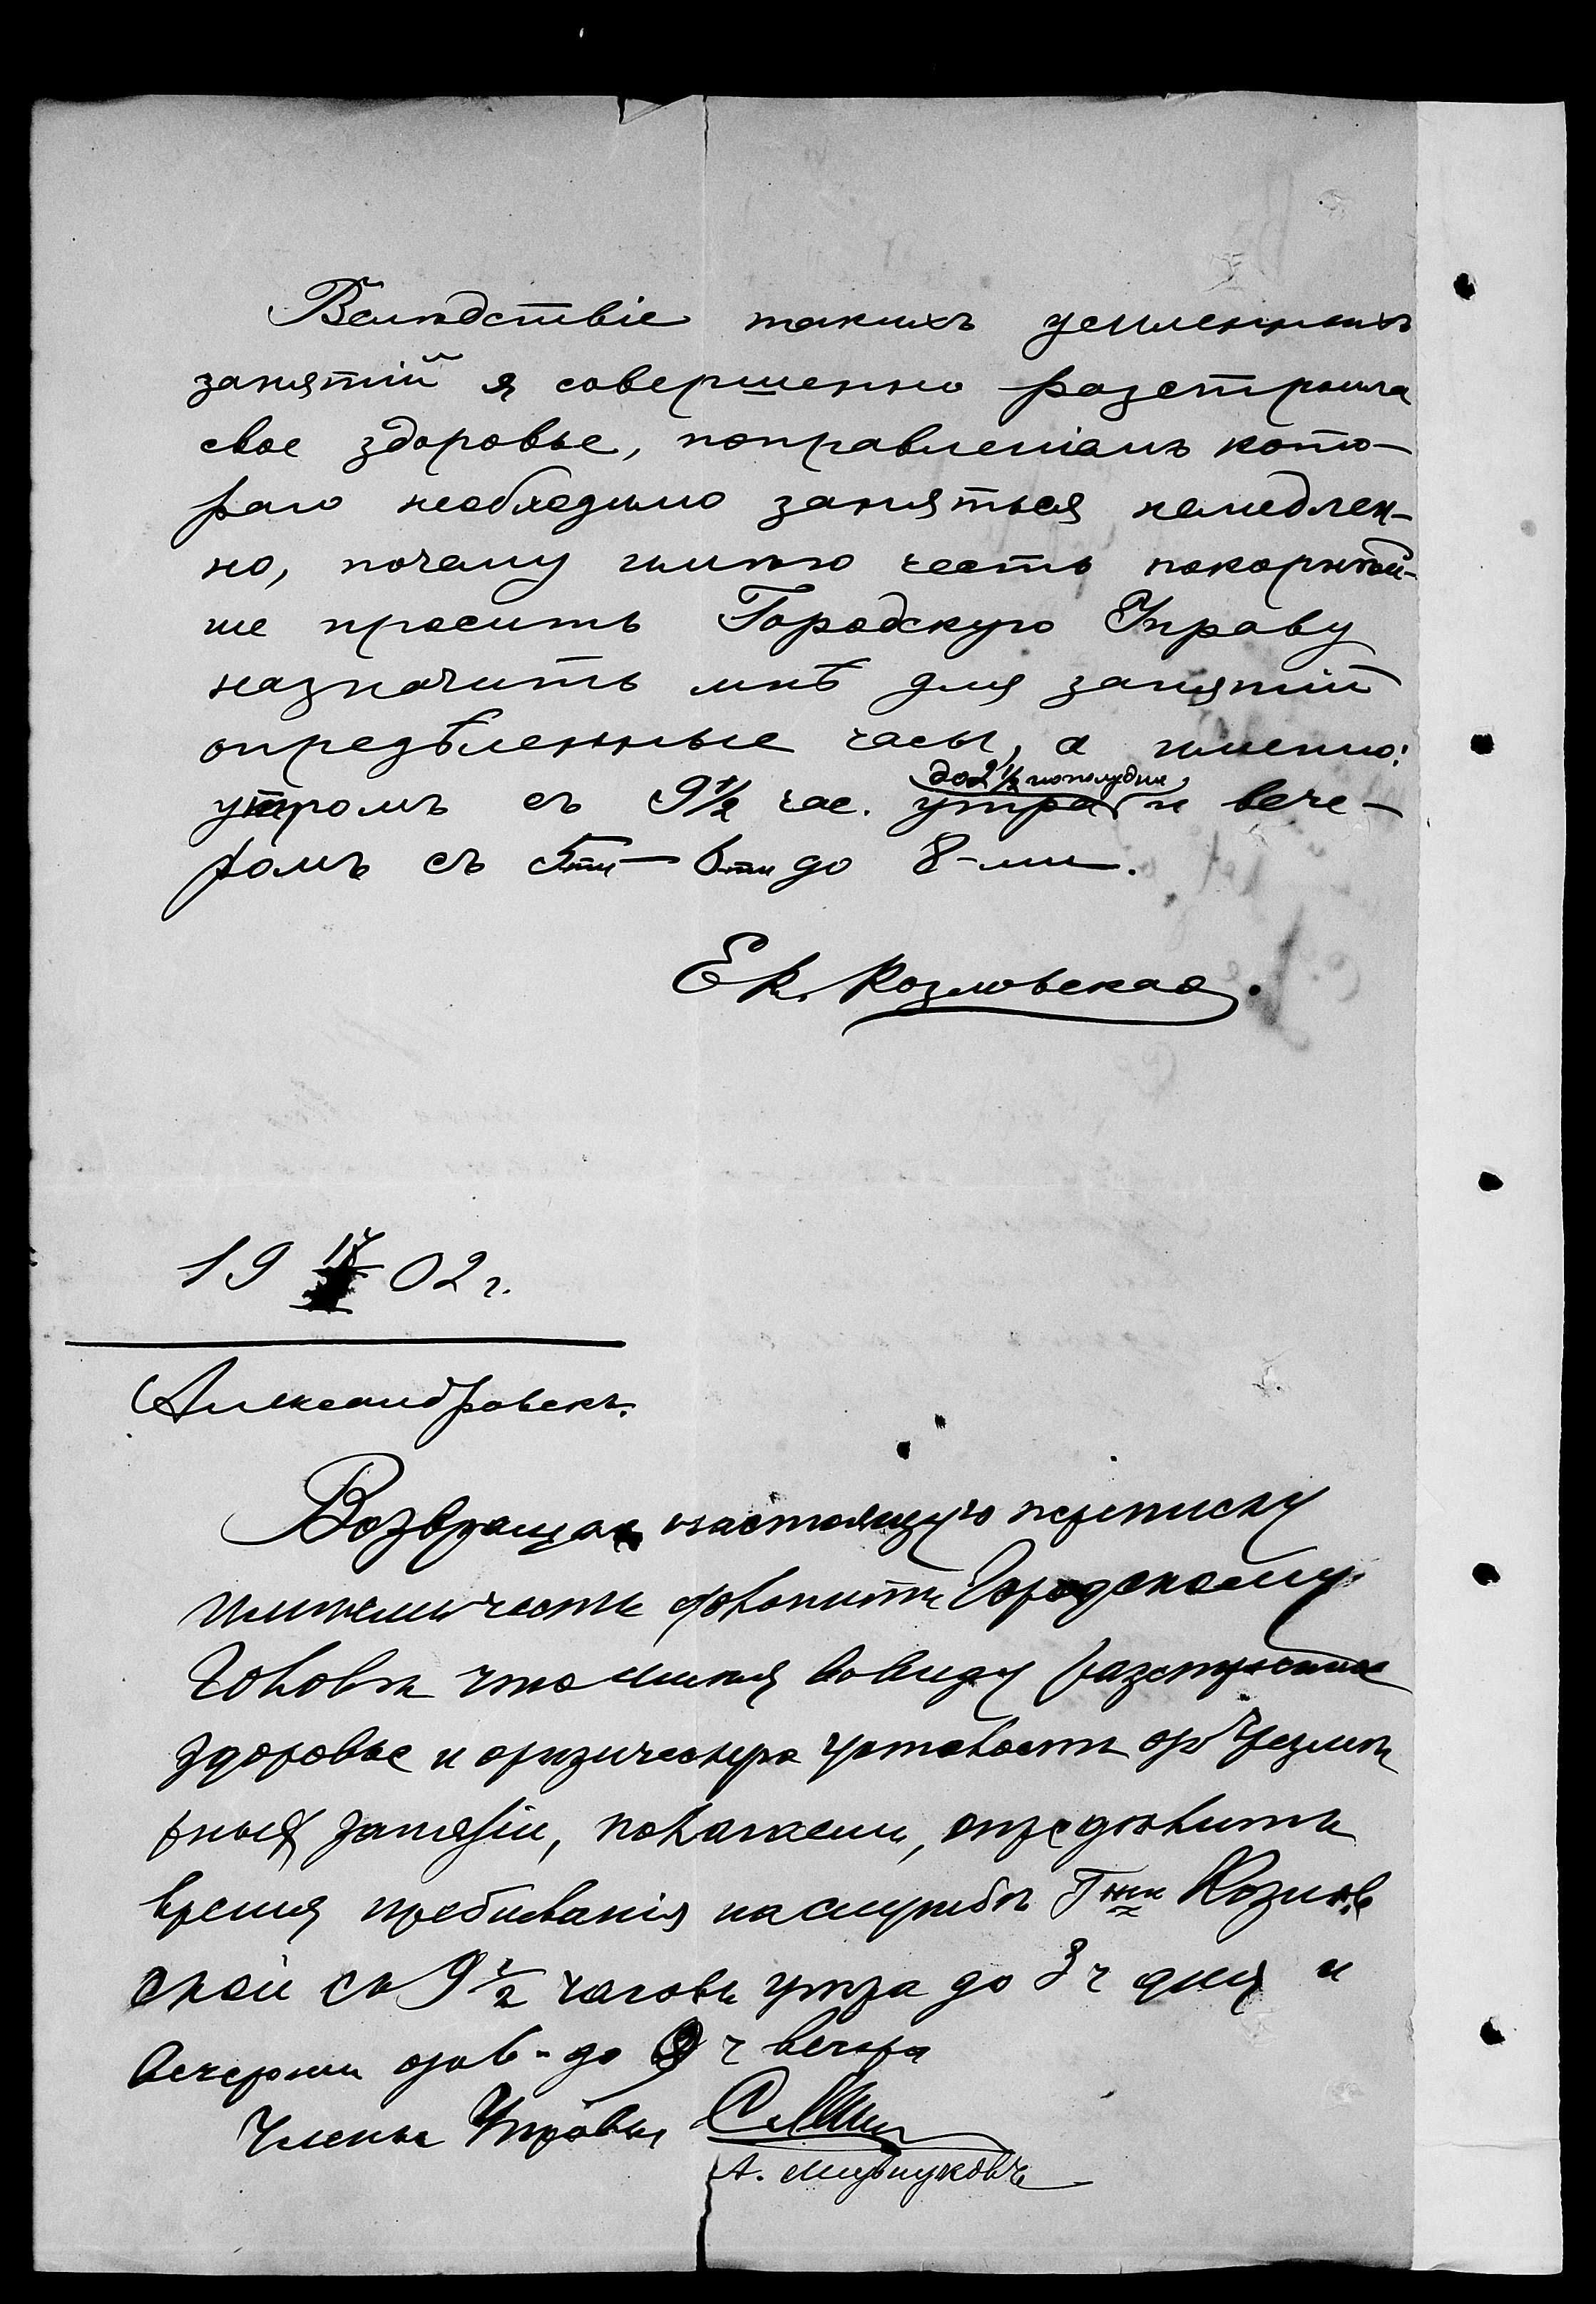 Вслѣдствіе такихъ усиленныхъ
занятій я совершенно разстроила
свое здоровье, поправленіемъ кото-
раго необходимо заняться немедлен-
но, почему имѣю честь покорнѣй-
ше просить Городскую Управу
назначить мнѣ для занятій
опредѣленные часы, а именно:
до 2 1/2 пополудни
утромъ съ 9 1/2 час. утра и вече-
ромъ съ 5ти — 6ти до 8-ми.
Ек. Козловская.
19 02 г.
Александровскъ.
Возвращая настоящую переписку
имѣемъ честь доложить Городскому
Головѣ что мнѣнія ввиду разстроеннаго
здоровье и физическую усталость
занятій, полагаемъ, опредѣлить
время пребыванія на службѣ Г-жи Козлов
ской съ 9 1/2 часовъ утра до 3 ч дня и
вечеромъ 6 - до 9 ч вечера
Члены Управы
А.